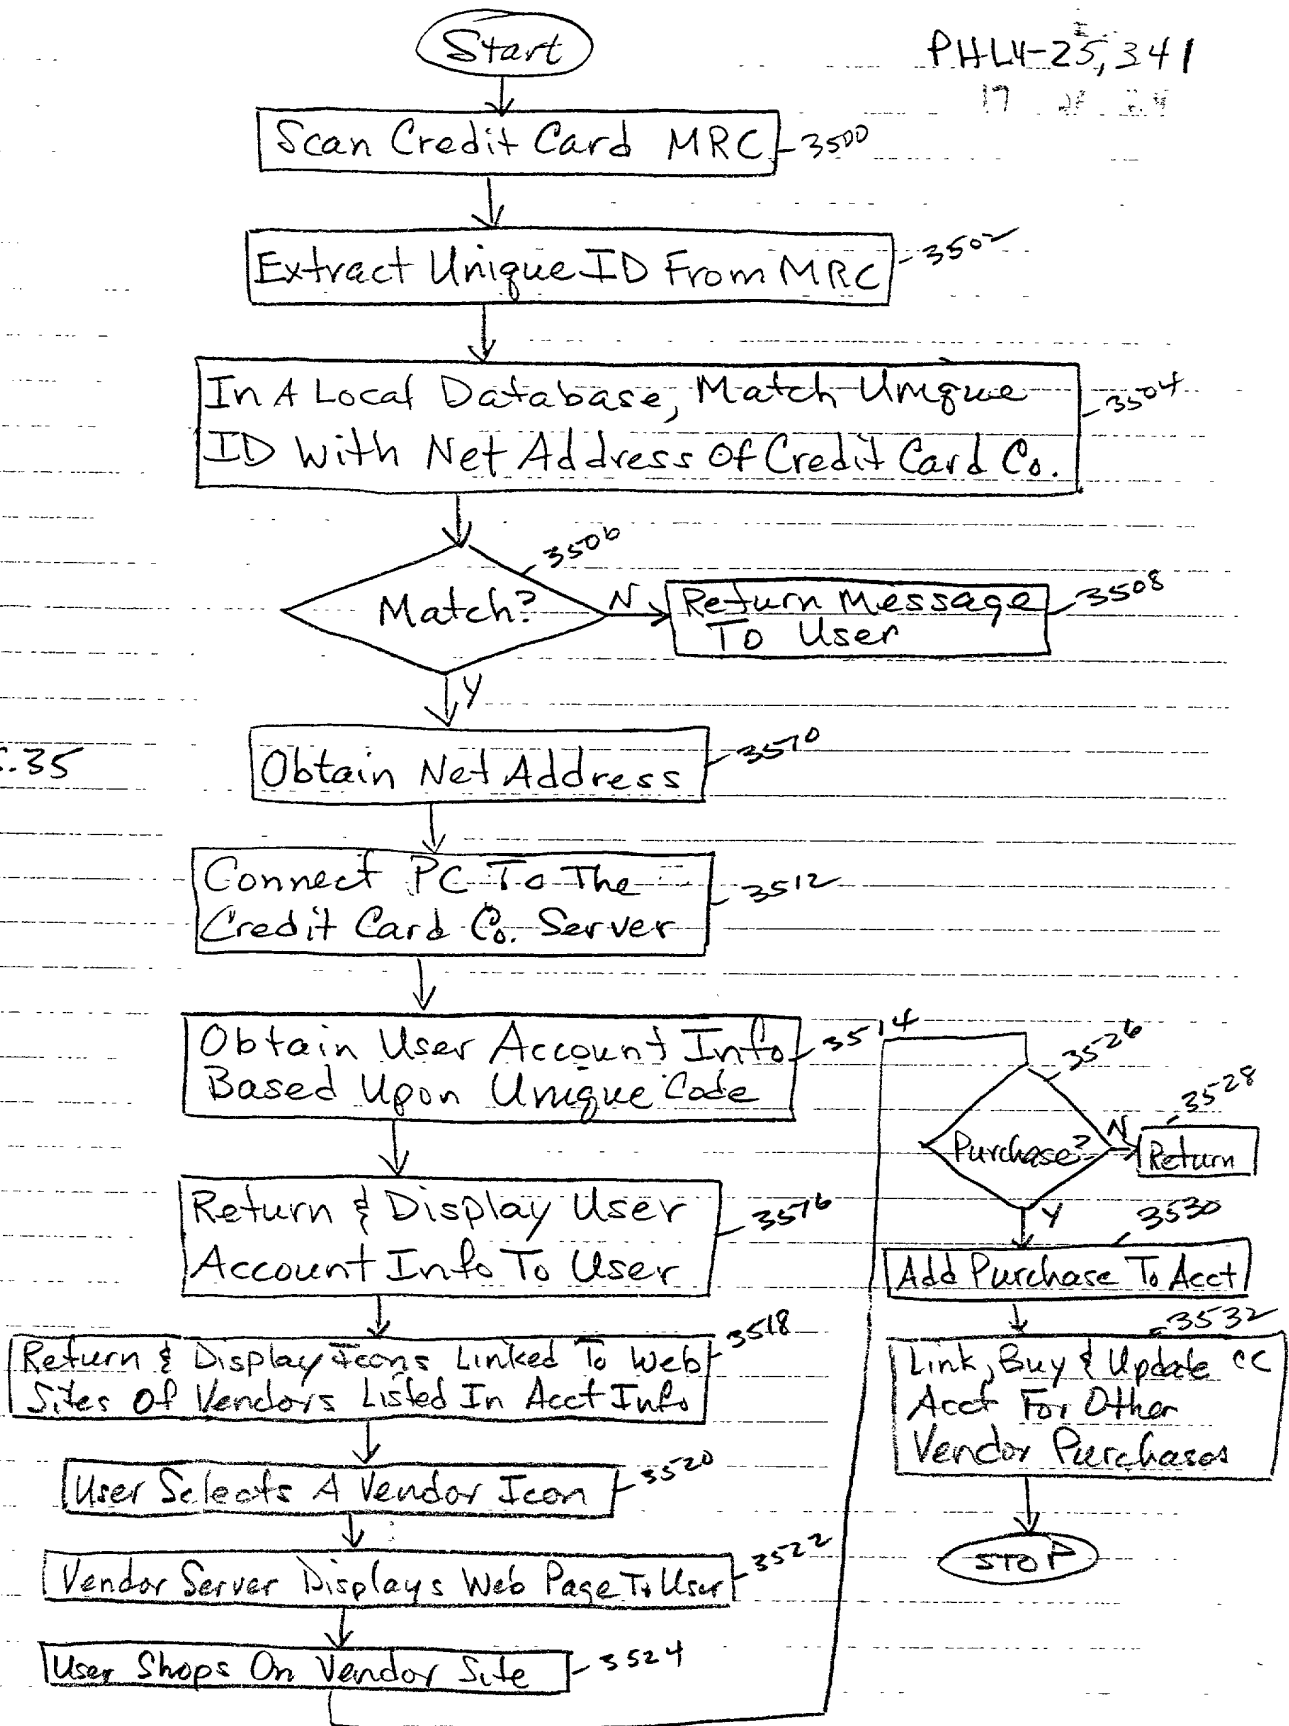 Start
PHLY-25,341
17
Scan Credit Card MRC
3500
Extract Unique ID From MRC
3502
In A Local Database, Match Unique
ID With Net Address Of Credit Card Co.
3504
3506
Match?
N
Return Message
To User
3508
Y
.35
Obtain Net Address
3510
Connect PC To The
Credit Card Co. Server
3512
Obtain User Account Info
Based Upon Unique Code
3514
Return & Display User
Account Info To User
3516
Return & Display Icons Linked To Web
Sites Of Vendors Listed In Acct Info
3518
User Selects A Vendor Icon
3520
Vendor Server Displays Web Page To User
3522
User Shops On Vendor Site
3524
3526
Purchase?
N
3528
Return
Y
3530
Add Purchase To Acct
3532
Link, Buy & Update CC
Acct For Other
Vendor Purchases
STOP